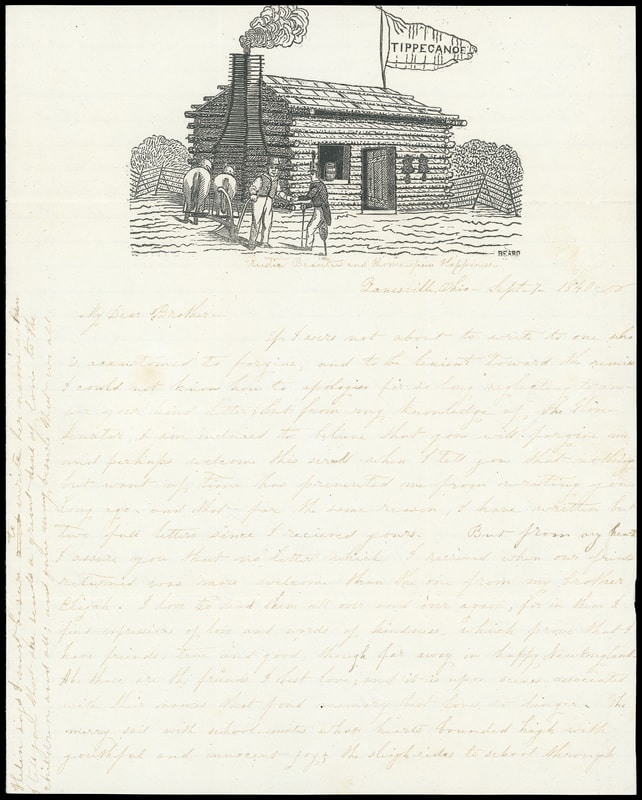 TIPPECANOE
BEARD
Rustic Beauties and Homespun Happiness
Zanesville, Ohio Sept 7 1840
My Dear Brother
If I were not about to write to one who
is accustomed to forgive, and to be lenient toward the remiss
I could not know how to apologise for so long neglect to ans-
wer your kind letter, but from my knowledge of the
I am induced to believe that you will forgive me
and perhaps welcome this scroll when I tell you that nothing
but want of time has prevented me from writing you
long ago and that for the same reason, I have written but
two full letters since I recieved yours. But from my heart
I assure you that no letter which I recieved when our friend
returned was more welcome than the one from my brother
Elijah. I love to read them all over and over again, for in them I
find expressions of love and words of kindness, which prove that I
have friends, true and good, though far away in happy New England.
Ah these are the friends I best love, and it is upon scenes associated
with their names that fond memory best loves to linger. The
merry sail with school-mates whose hearts bounded high with
youthful and innocent joy; the sleigh-rides to school through
Helen says I must be sure to write her name &
tell you that she sends a great deal of love to the
children and all;